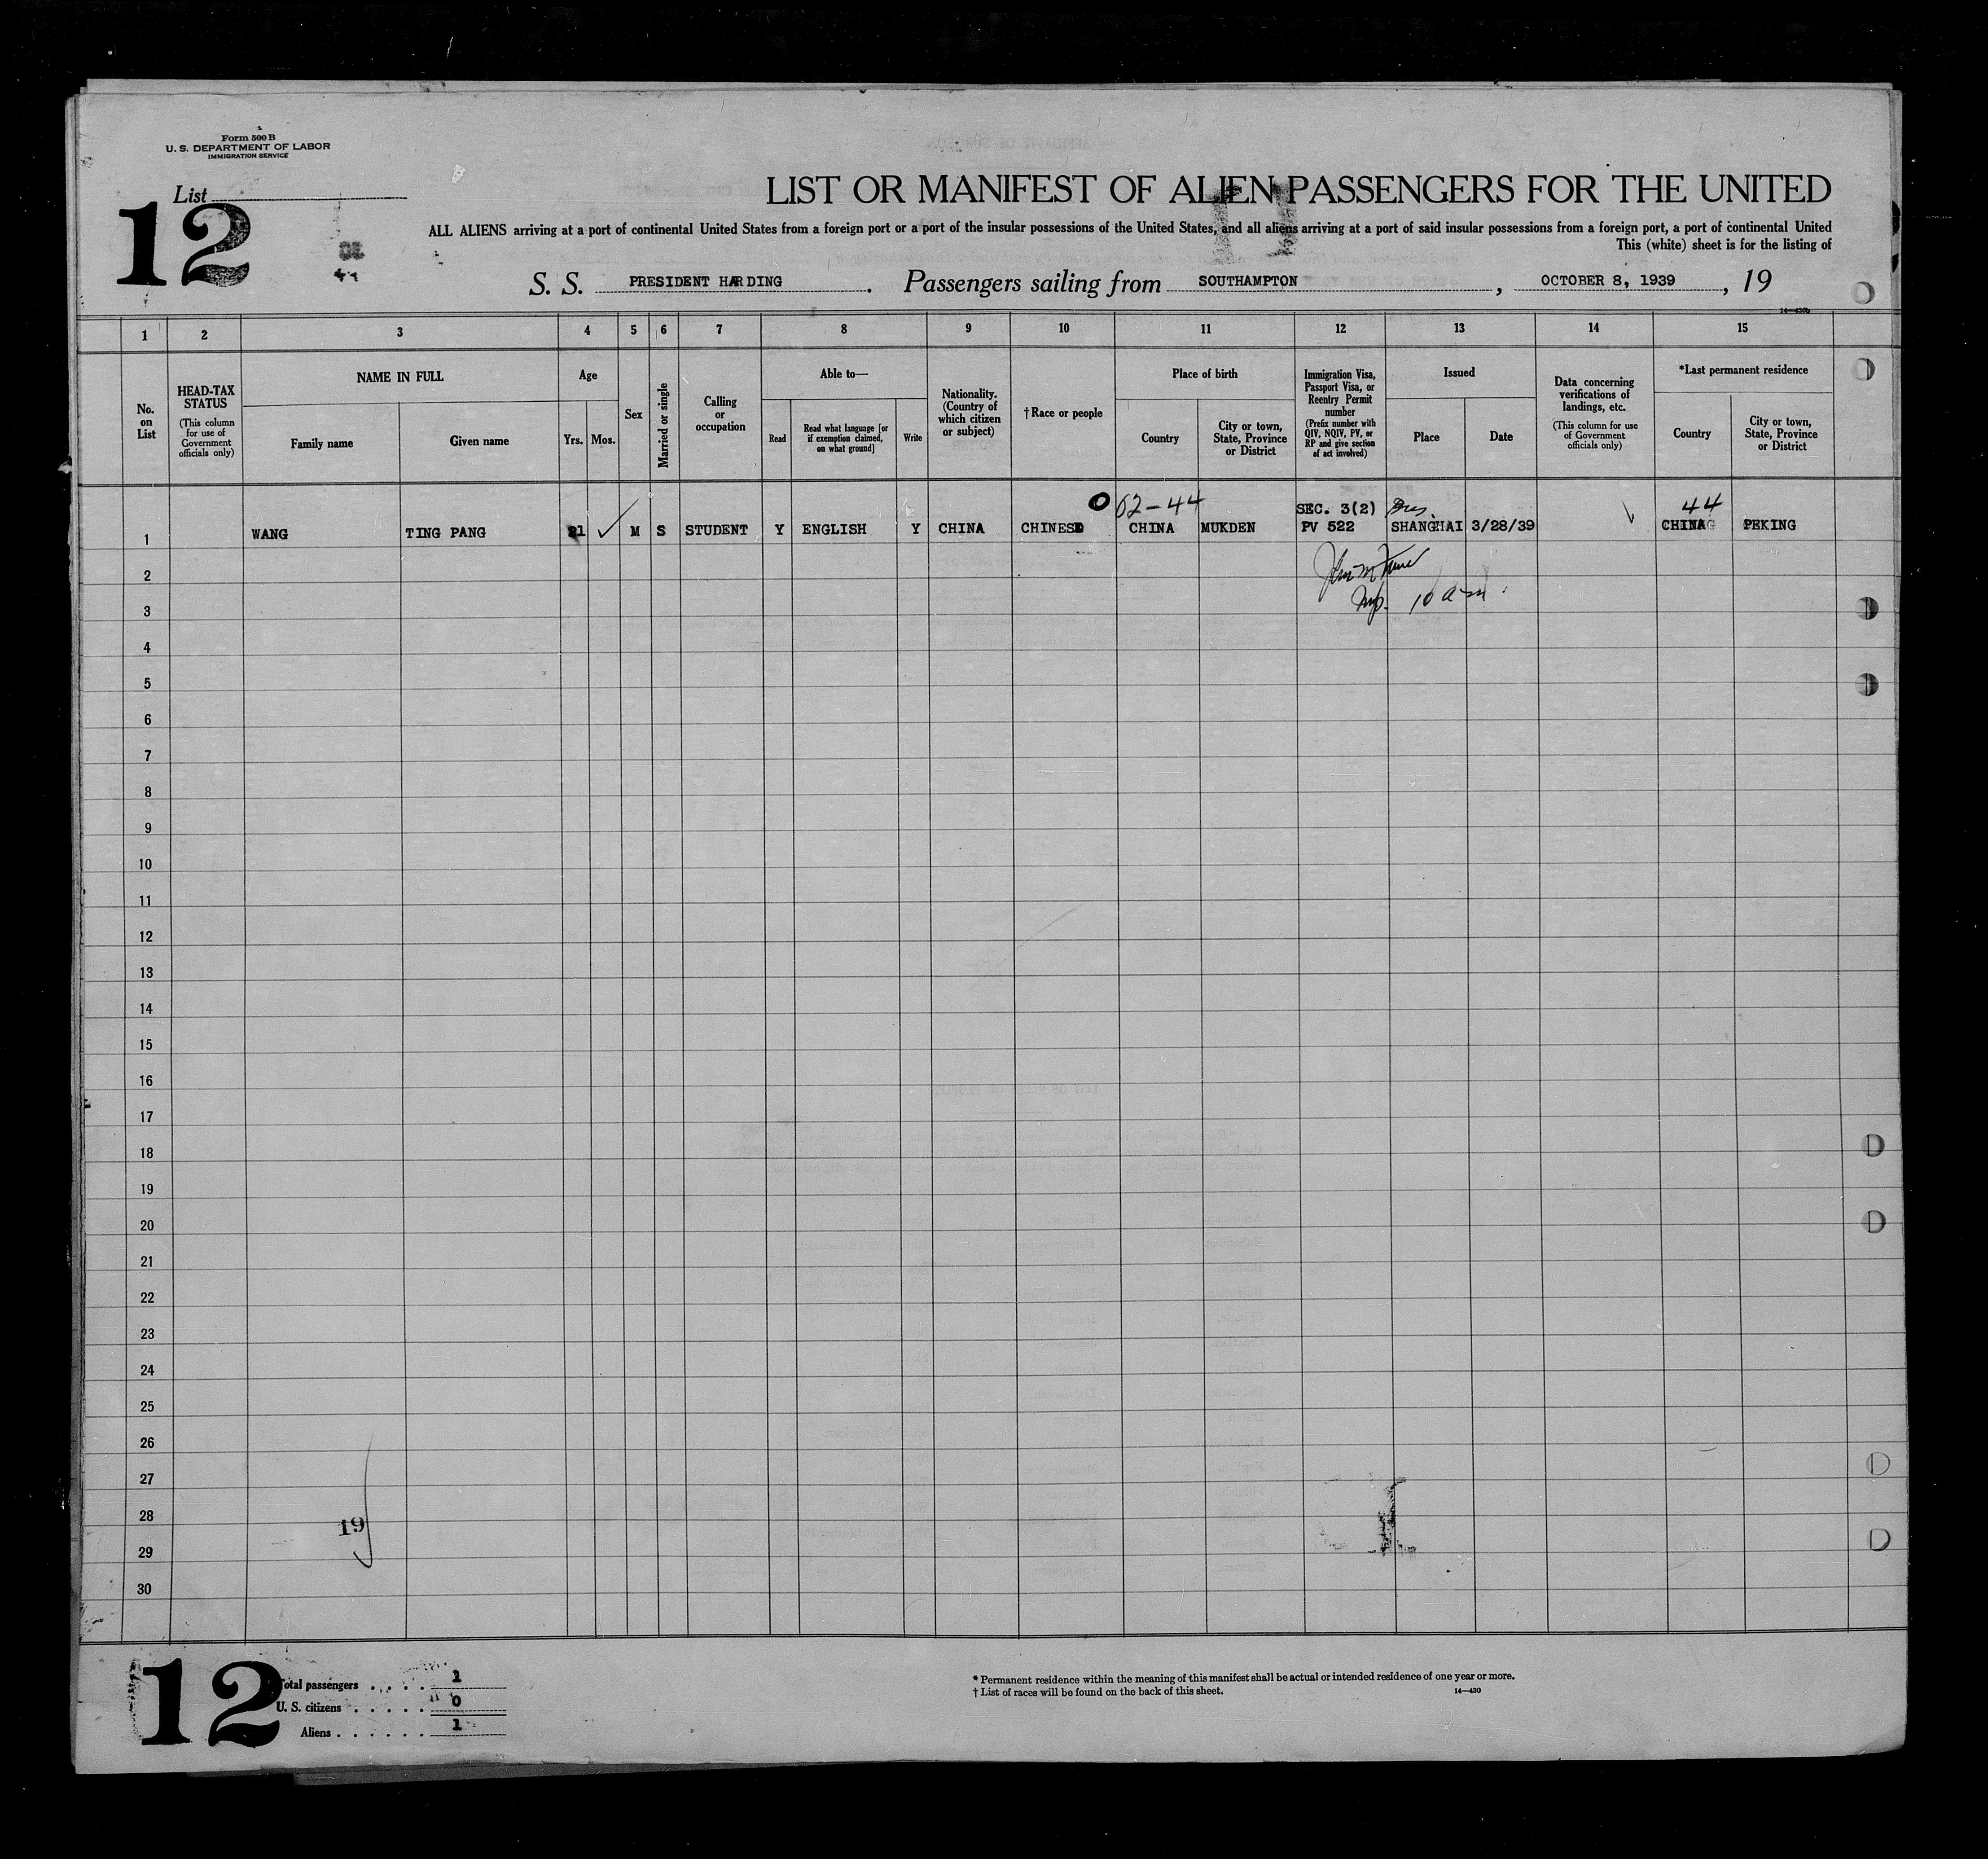 Form 500 B
U. S. DEPARTMENT OF LABOR
IMMIGRATION SERVICE
List
12
LIST OR MANIFEST OF ALIEN PASSENGERS FOR THE UNITED
ALL ALIENS arriving at a port of continental United States from a foreign port or a port of the insular possessions of the United States, and all aliens arriving at a port of said insular possessions from a foreign port, a port of continental United
This (white) sheet is for the listing of
S. S. PRESIDENT HARDING. Passengers sailing from SOUTHAMPTON, OCTOBER 8, 1939, 19
14—430b
1 2 3 4 5 6 7 8 9 10 11 12 13 14 15
No. on List
HEAD-TAX STATUS
(This column for use of Government officials only)
NAME IN FULL
Family name
Given name
Age
Yrs.
Mos.
Sex
Married or single
Calling or occupation
Able to—
Read
Read what language [or if exemption claimed, on what ground]
Write
Nationality. (Country of which citizen or subject)
†Race or people
Place of birth
Country
City or town, State, Province or District
Immigration Visa, Passport Visa, or Reentry Permit number
(Prefix number with QIV, NQIV, PV, or RP and give section of act involved)
Issued
Place
Date
Data concerning verifications of landings, etc.
(This column for use of Government officials only)
*Last permanent residence
Country
City or town, State, Province or District
0 62-44 SEC. 3(2) 44
1 WANG TING PANG 21 ✓ M S STUDENT Y ENGLISH Y CHINA CHINESE CHINA MUKDEN PV 522 SHANGHAI 3/28/39 CHINA PEKING
2
3 10 am
4
5
6
7
8
9
10
11
12
13
14
15
16
17
18
19
20
21
22
23
24
25
26
27
28
19
29
30
12
Total passengers . . . . 1
U. S. citizens . . . . . 0
Aliens . . . . . . 1
* Permanent residence within the meaning of this manifest shall be actual or intended residence of one year or more.
† List of races will be found on the back of this sheet. 14—430